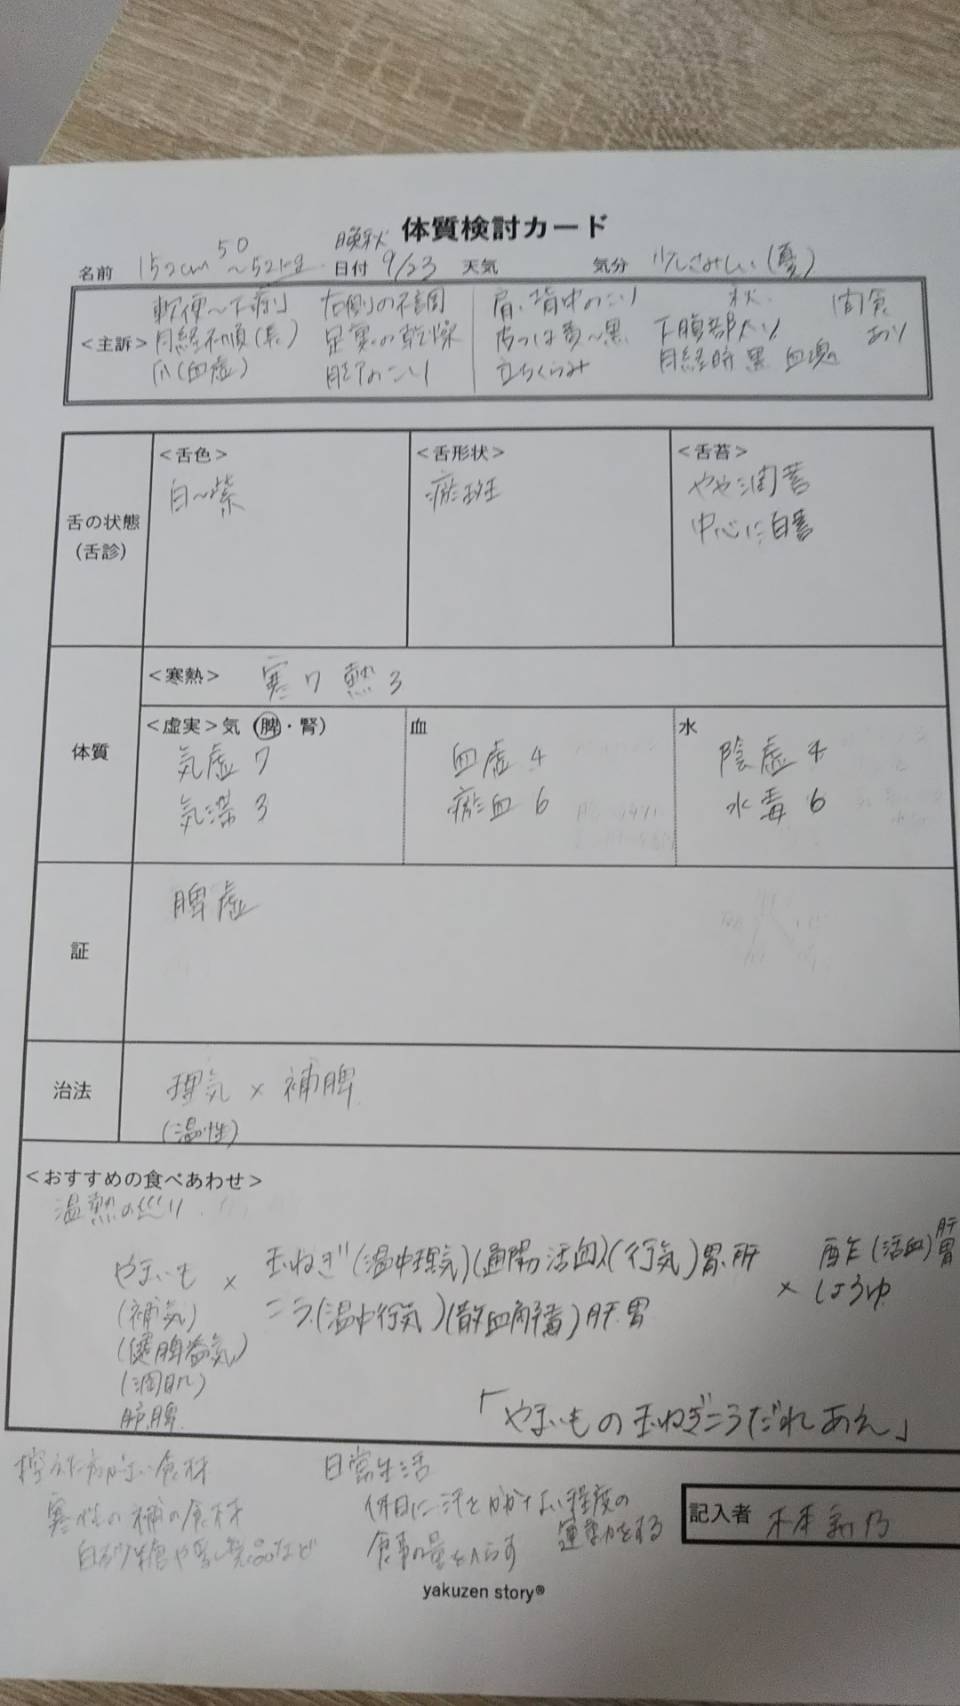 体質検討カード
名前 152cm 50～52kg 晩秋 日付 9/23 天気 気分 少しさみしい(憂)
<主訴>
軟便～下痢 右側の不調 肩、背中のこり 秋、 間食
月経不順(長) 足裏の乾燥 下腹部太り あり
爪(血虚) のこり 立ちくらみ 月経時 黒 血塊
舌の状態
(舌診)
<舌色>
白～紫
<舌形状>
瘀斑
<舌苔>
やや潤苔
中心に白苔
体質
<寒熱> 寒7 熱3
<虚実>気(脾・腎)
気虚 7
気滞 3
血
血虚 4
瘀血 6
水
陰虚 4
水毒 6
証
脾虚
治法
理気 × 補脾
(温性)
<おすすめの食べあわせ>
温熱の巡り
やまいも × 玉ねぎ(温中理気)(通陽活血)(行気)胃.肝
(補気) ニラ(温中行気)(散血解毒)肝胃
× 酢(活血)肝胃
しょうゆ
(健脾益気)
(潤肌)
肺脾
「やまいもの玉ねぎニラだれあえ」
控えた方がよい食材
寒性の補の食材
白砂糖や乳製品など
日常生活
休日に汗をかかない程度の
運動をする
食事の量をへらす
記入者
yakuzen story®